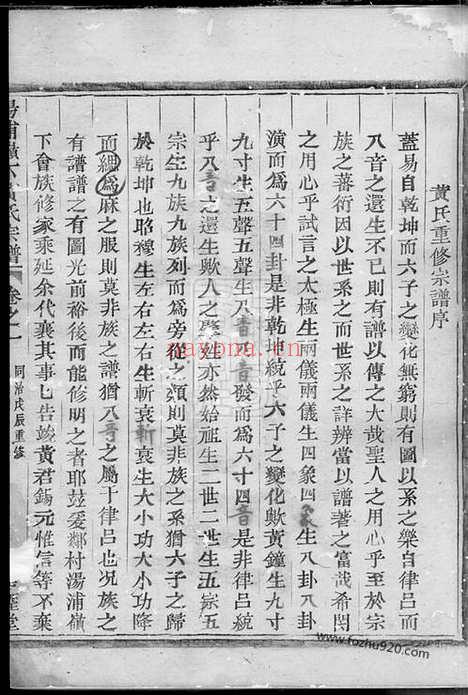 黃氏重修宗譜序
蓋易自乾坤而六子之變化無窮則有圖以系之樂自律呂而
八音之還生不已則有譜以傳之大哉聖人之用心乎至於宗
族之蕃衍因以世系之而世系之詳辨當以譜著之富哉希罔
之用心乎試言之太極生兩儀兩儀生四象四象生八卦八卦
演而爲六十四卦是非乾坤統乎六子之變化歟黃鐘生九寸
九寸生五聲五聲生八音八音發而爲六寸四音是非律呂統
乎八音之還生歟人之聚姓亦然始祖生二世二世生五宗五
宗生九族九族列而爲旁從之類則莫非族之系猶六子之歸
於乾坤也昭穆生左右左右生斬衰斬衰生大小功大小功降
而緦爲麻之服則莫非族之譜猶八音之屬于律呂也況族之
有譜譜之有圖光前裕後而能修明之者耶玆爰鄰村湯浦嶺
下會族修家乘延余代襄其事匕告竣黃君錫元惟信等不棄
湯浦嶺下黃氏宗譜
卷之一
同治戊辰重修
堂
nayona.cn
www.fozhu920.com